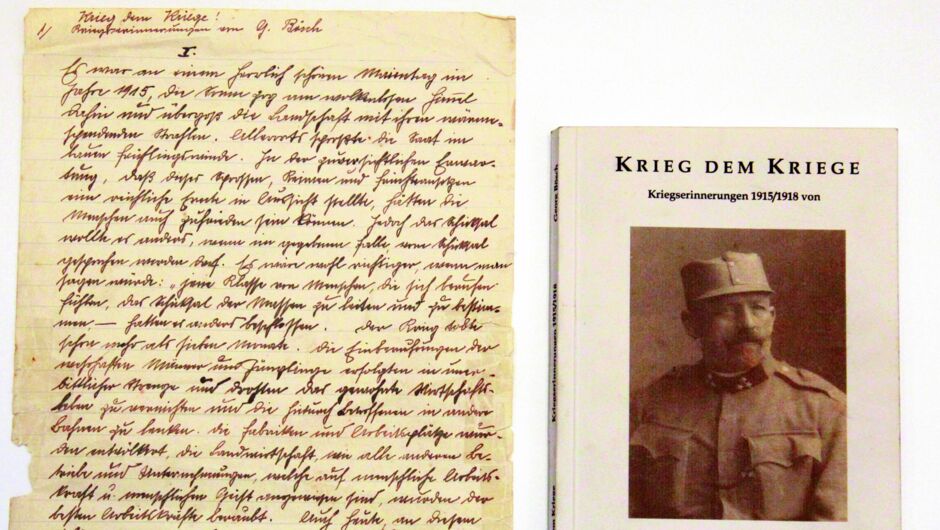 1/ Krieg dem Kriege!
Kriegserinnerungen von G. Bösch
I.
Es war an einem herrlich schönen Maientag im
Jahre 1915, die Sonne zog am wolkenlosen Himmel
dahin und übergoß die Landschaft mit ihren wärme-
spendenden Strahlen. Allerorts sproßte die Saat im
lauen Frühlingswinde. In der zuversichtlichen Erwar-
tung, daß dieses Sprossen, Keimen und Früchteansetzen
eine reichliche Ernte in Aussicht stellte, hätten die
Menschen auch zufrieden sein können. Jedoch das Schicksal
wollte es anders, wenn im gegebenen Falle vom Schicksal
gesprochen werden darf. Es wäre wohl richtiger, wenn man
sagen würde: „jene Klasse von Menschen, die sich berufen
fühlten, das Schicksal der Massen zu leiten und zu bestim-
men, — hatten es anders beschlossen. Der Krieg tobte
schon mehr als sieben Monate. Die Einberufungen der
wehrhaften Männer und Jünglinge erfolgten in uner-
bittlicher Strenge und drohten das gewohnte Wirtschafts-
leben zu vernichten und die hiedurch Betroffenen in andere
Bahnen zu lenken. Die Fabriken und Arbeitsplätze wur-
den entvölkert, die Landwirtschaft, wie alle anderen Be-
triebe und Unternehmungen, welche auf menschliche Arbeits-
kraft u. menschlichen Geist angewiesen sind, wurden der
besten Arbeitskräfte beraubt. Auch heute, an diesem
KRIEG DEM KRIEGE
Kriegserinnerungen 1915/1918 von
Georg Bösch
Kriegserinnerungen 1915/1918